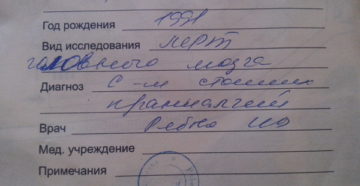 Год рождения 1991
Вид исследования мррт
головного мозга
Диагноз С-м стойких
кранналгий
Врач
Мед. учреждение
Примечания